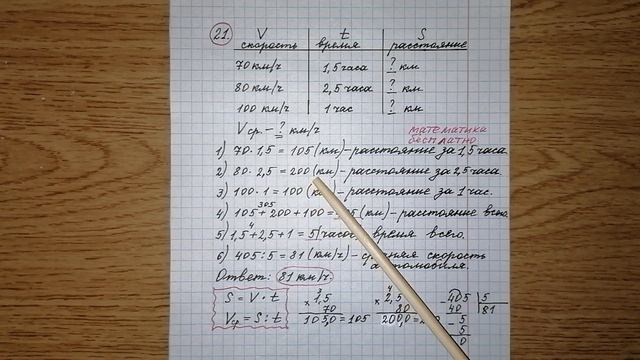 21. V t S
скорость время расстояние
70 км/ч 1,5 часа ? км
80 км/ч 2,5 часа ? км
100 км/ч 1 час ? км
Vср. – ? км/ч
математика
бесплатно
1) 70 · 1,5 = 105 (км) – расстояние за 1,5 часа.
2) 80 · 2,5 = 200 (км) – расстояние за 2,5 часа.
3) 100 · 1 = 100 (км) – расстояние за 1 час.
305
4) 105 + 200 + 100 = (км) – расстояние всего.
4
5) 1,5 + 2,5 + 1 = 5 (часов) время всего.
6) 405 : 5 = 81 (км/ч) – средняя скорость
автомобиля.
Ответ: 81 км/ч
S = V · t
Vср = S : t
3
× 1,5
70
105,0 = 105
4
× 2,5
80
200,0 =
– 405 5
40 81
– 5
5
0